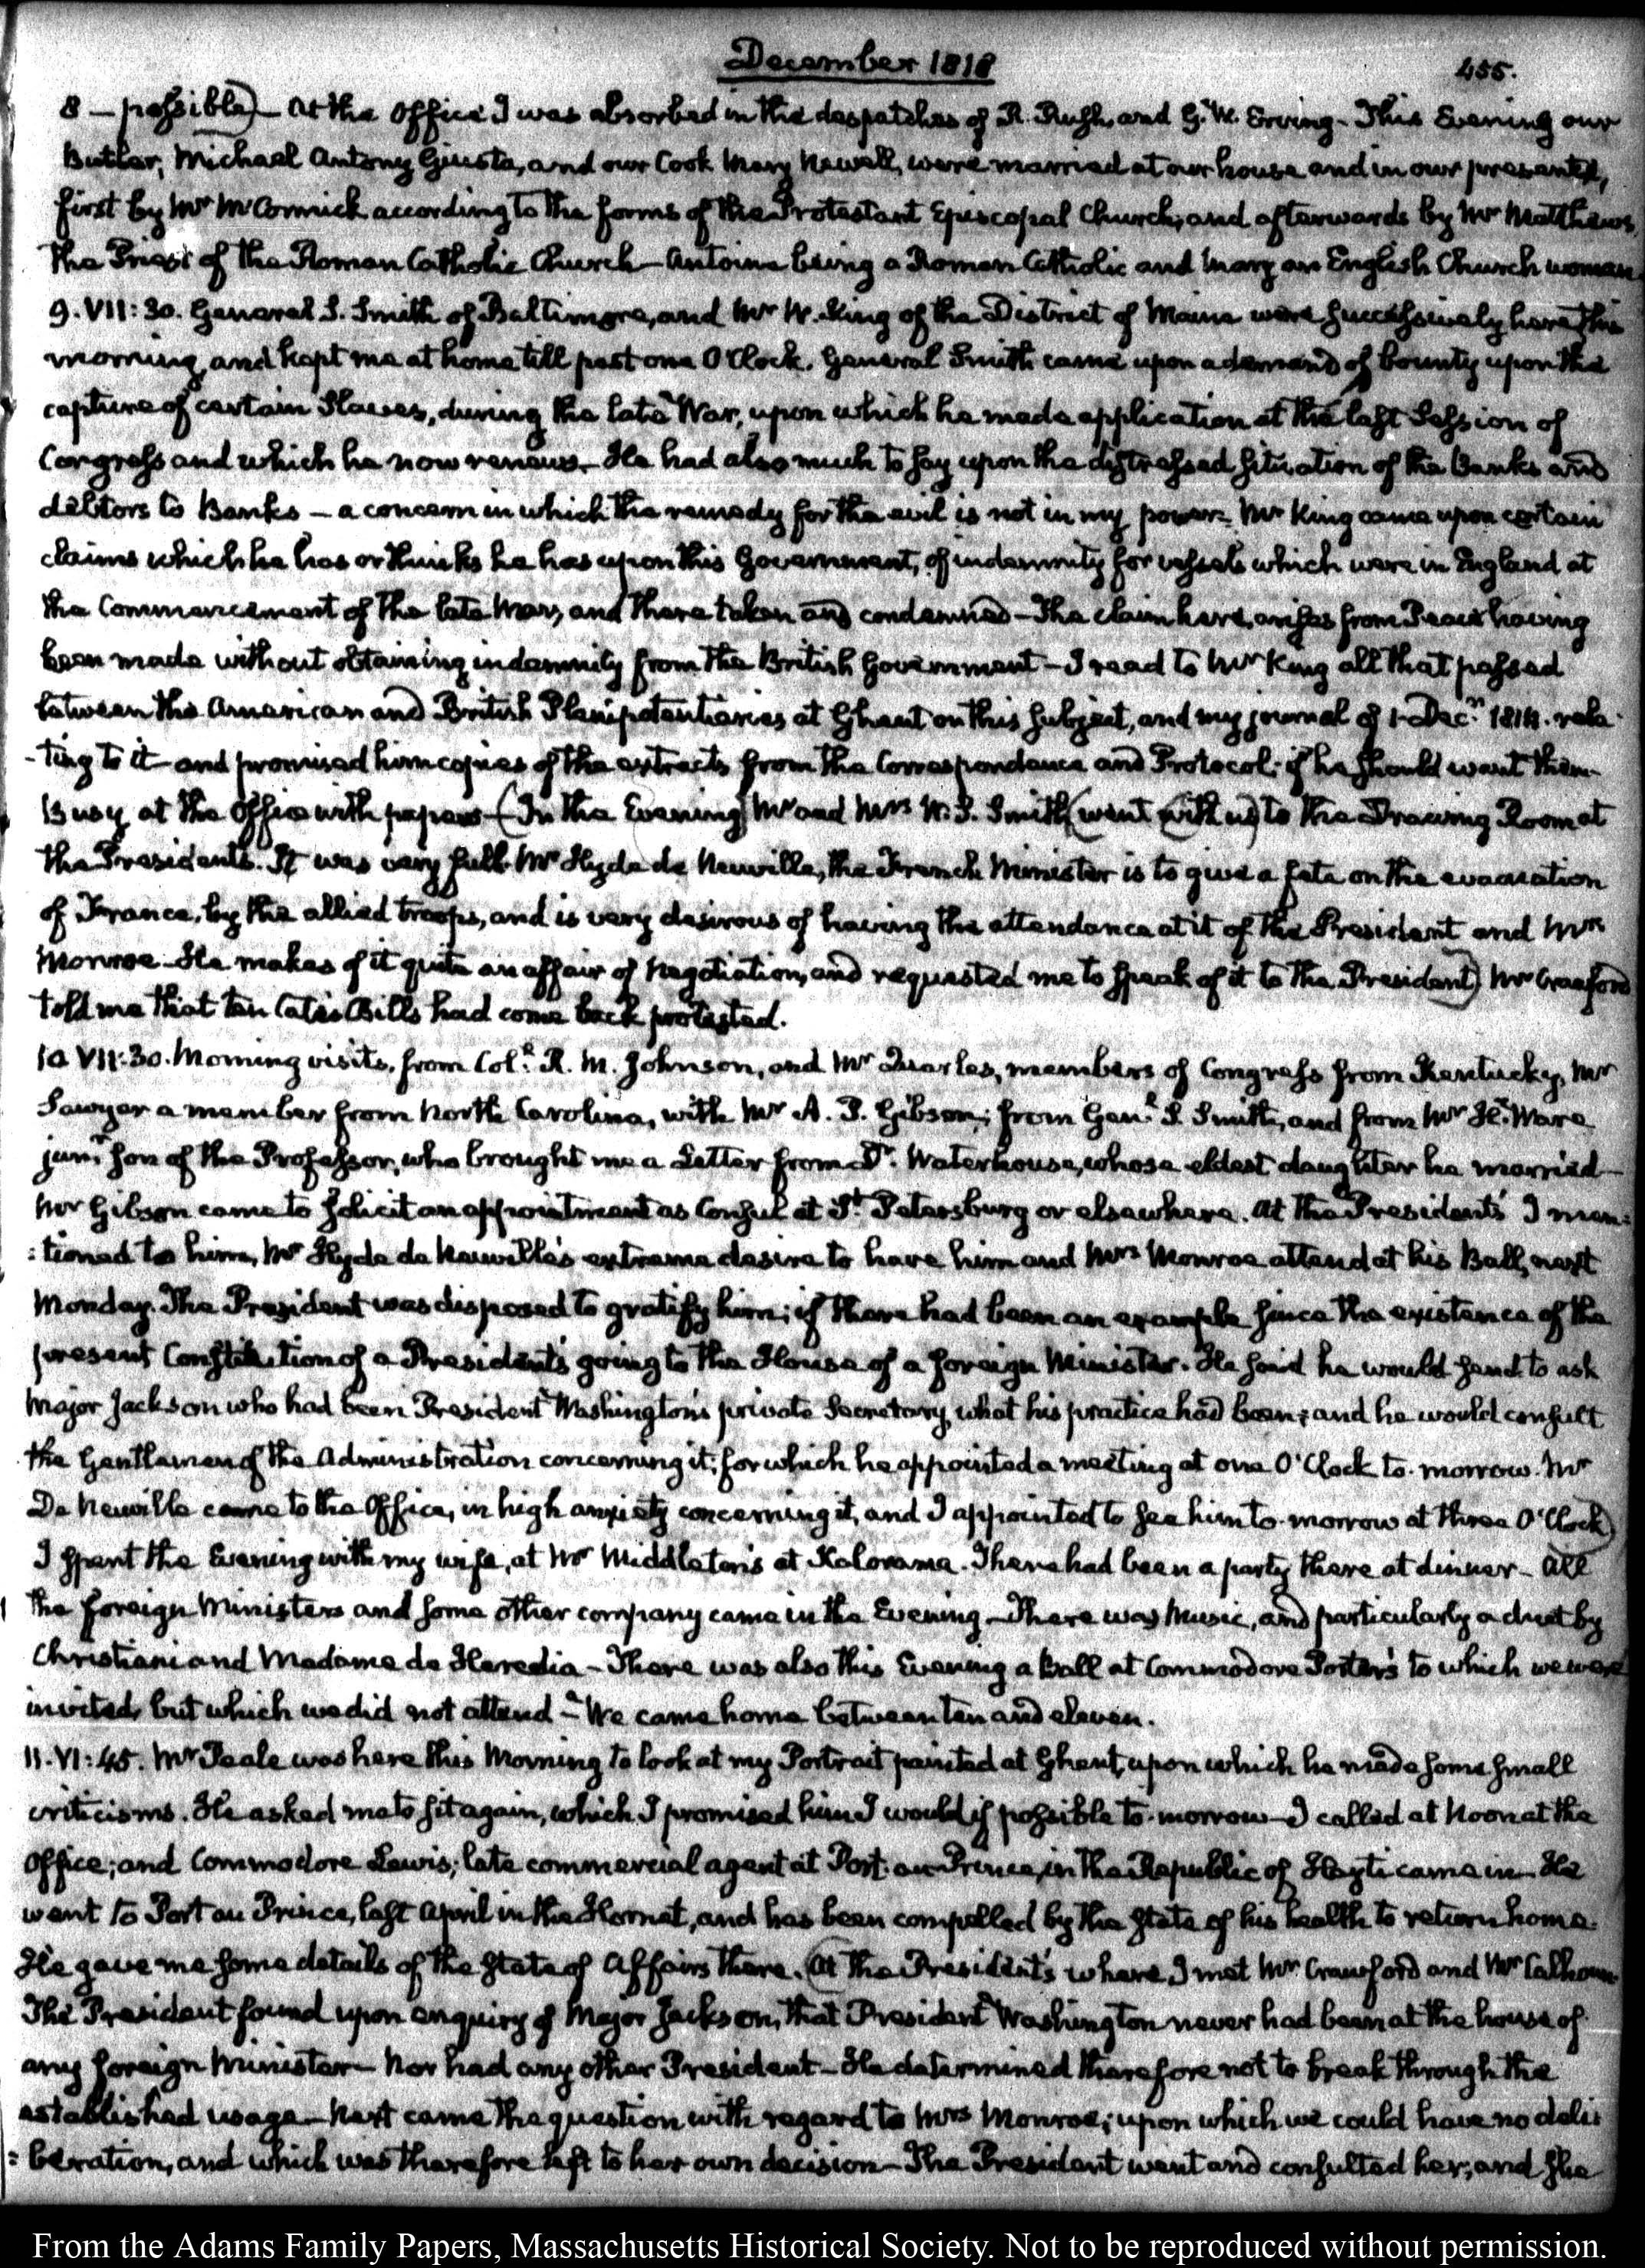 December 1818
455.
8 — possible) — At the Office I was absorbed in the despatches of R. Rush, and G. W. Erving — This Evening our
Butler, Michael Antony Giusta, and our Cook Mary Newell, were married at our house and in our presence,
first by Mr McCormick according to the forms of the Protestant Episcopal Church, and afterwards by Mr Matthews,
the Priest of the Roman Catholic Church — Antoine being a Roman Catholic and Mary an English Church woman
9. VII:30. General S. Smith of Baltimore, and Mr W. King of the District of Maine were successively here this
morning, and kept me at home till past one O'Clock. General Smith came upon a demand of bounty upon the
capture of certain Slaves, during the late War, upon which he made application at the last Session of
Congress and which he now renews. He had also much to say upon the distressed situation of the Banks and
debtors to Banks — a concern in which the remedy for the evil is not in my power. Mr King came upon certain
claims which he has or thinks he has upon this Government, of indemnity for vessels which were in England at
the Commencement of the late War, and there taken and condemned — The claim here, arises from Peace having
been made without obtaining indemnity from the British Government — I read to Mr King all that passed
between the American and British Plenipotentiaries at Ghent on this subject, and my journal of 1 Decr 1814. rela-
-ting to it — and promised him copies of the extracts from the Correspondence and Protocol, if he should want them.
Busy at the Office with papers — (In the Evening) Mr and Mrs W. S. Smith (went (with us) to the Drawing Room at
the President's. It was very full. Mr Hyde de Neuville, the French Minister is to give a fete on the evacuation
of France, by the allied troops, and is very desirous of having the attendance at it of the President and Mrs
Monroe — He makes of it quite an affair of Negotiation, and requested me to speak of it to the President) Mr Crawford
told me that ten Cates Bills had come back protested.
10 VII:30. Morning visits, from Coll. R. M. Johnson, and Mr Quarles, members of Congress from Kentucky, Mr
Sawyer a member from North Carolina, with Mr A. P. Gibson; from Genl. S. Smith, and from Mr H. Ware
junr. son of the Professor, who brought me a Letter from Dr. Waterhouse, whose eldest daughter he married —
Mr Gibson came to solicit an appointment as Consul at St. Petersburg or elsewhere. At the President's I men=
=tioned to him, Mr Hyde de Neuville's extreme desire to have him and Mrs Monroe attend at his Ball, next
Monday. The President was disposed to gratify him; if there had been an example since the existence of the
present Constitution of a President's going to the House of a foreign Minister. He said he would send to ask
Major Jackson who had been President Washington's private Secretary, what his practice had been; and he would consult
the Gentlemen of the Administration concerning it; for which he appointed a meeting at one O'Clock to-morrow. Mr
De Neuville came to the Office, in high anxiety concerning it, and I appointed to see him to-morrow at three O'Clock)
I spent the Evening with my wife, at Mr Middleton's at Kalorama. There had been a party there at dinner — All
the foreign Ministers and some other company came in the Evening — There was Music, and particularly a duet by
Christiani and Madame de Heredia — There was also this Evening a Ball at Commodore Porter's to which we were
invited, but which we did not attend — We came home between ten and eleven.
11. VI:45. Mr Peale was here this Morning to look at my Portrait painted at Ghent, upon which he made some small
criticisms. He asked me to sit again, which I promised him I would if possible to-morrow — I called at Noon at the
Office; and Commodore Lewis, late commercial agent at Port-au-Prince, in the Republic of Hayti came in — He
went to Port au Prince, last April in the Hornet, and has been compelled by the state of his health to return home.
He gave me some details of the state of Affairs there. (At the President's where I met Mr Crawford and Mr Calhoun.
The President found upon enquiry of Major Jackson, that President Washington never had been at the house of
any foreign Minister — Nor had any other President — He determined therefore not to break through the
established usage — Next came the question with regard to Mrs Monroe; upon which we could have no deli=
=beration, and which was therefore left to her own decision — The President went and consulted her, and she
From the Adams Family Papers, Massachusetts Historical Society. Not to be reproduced without permission.